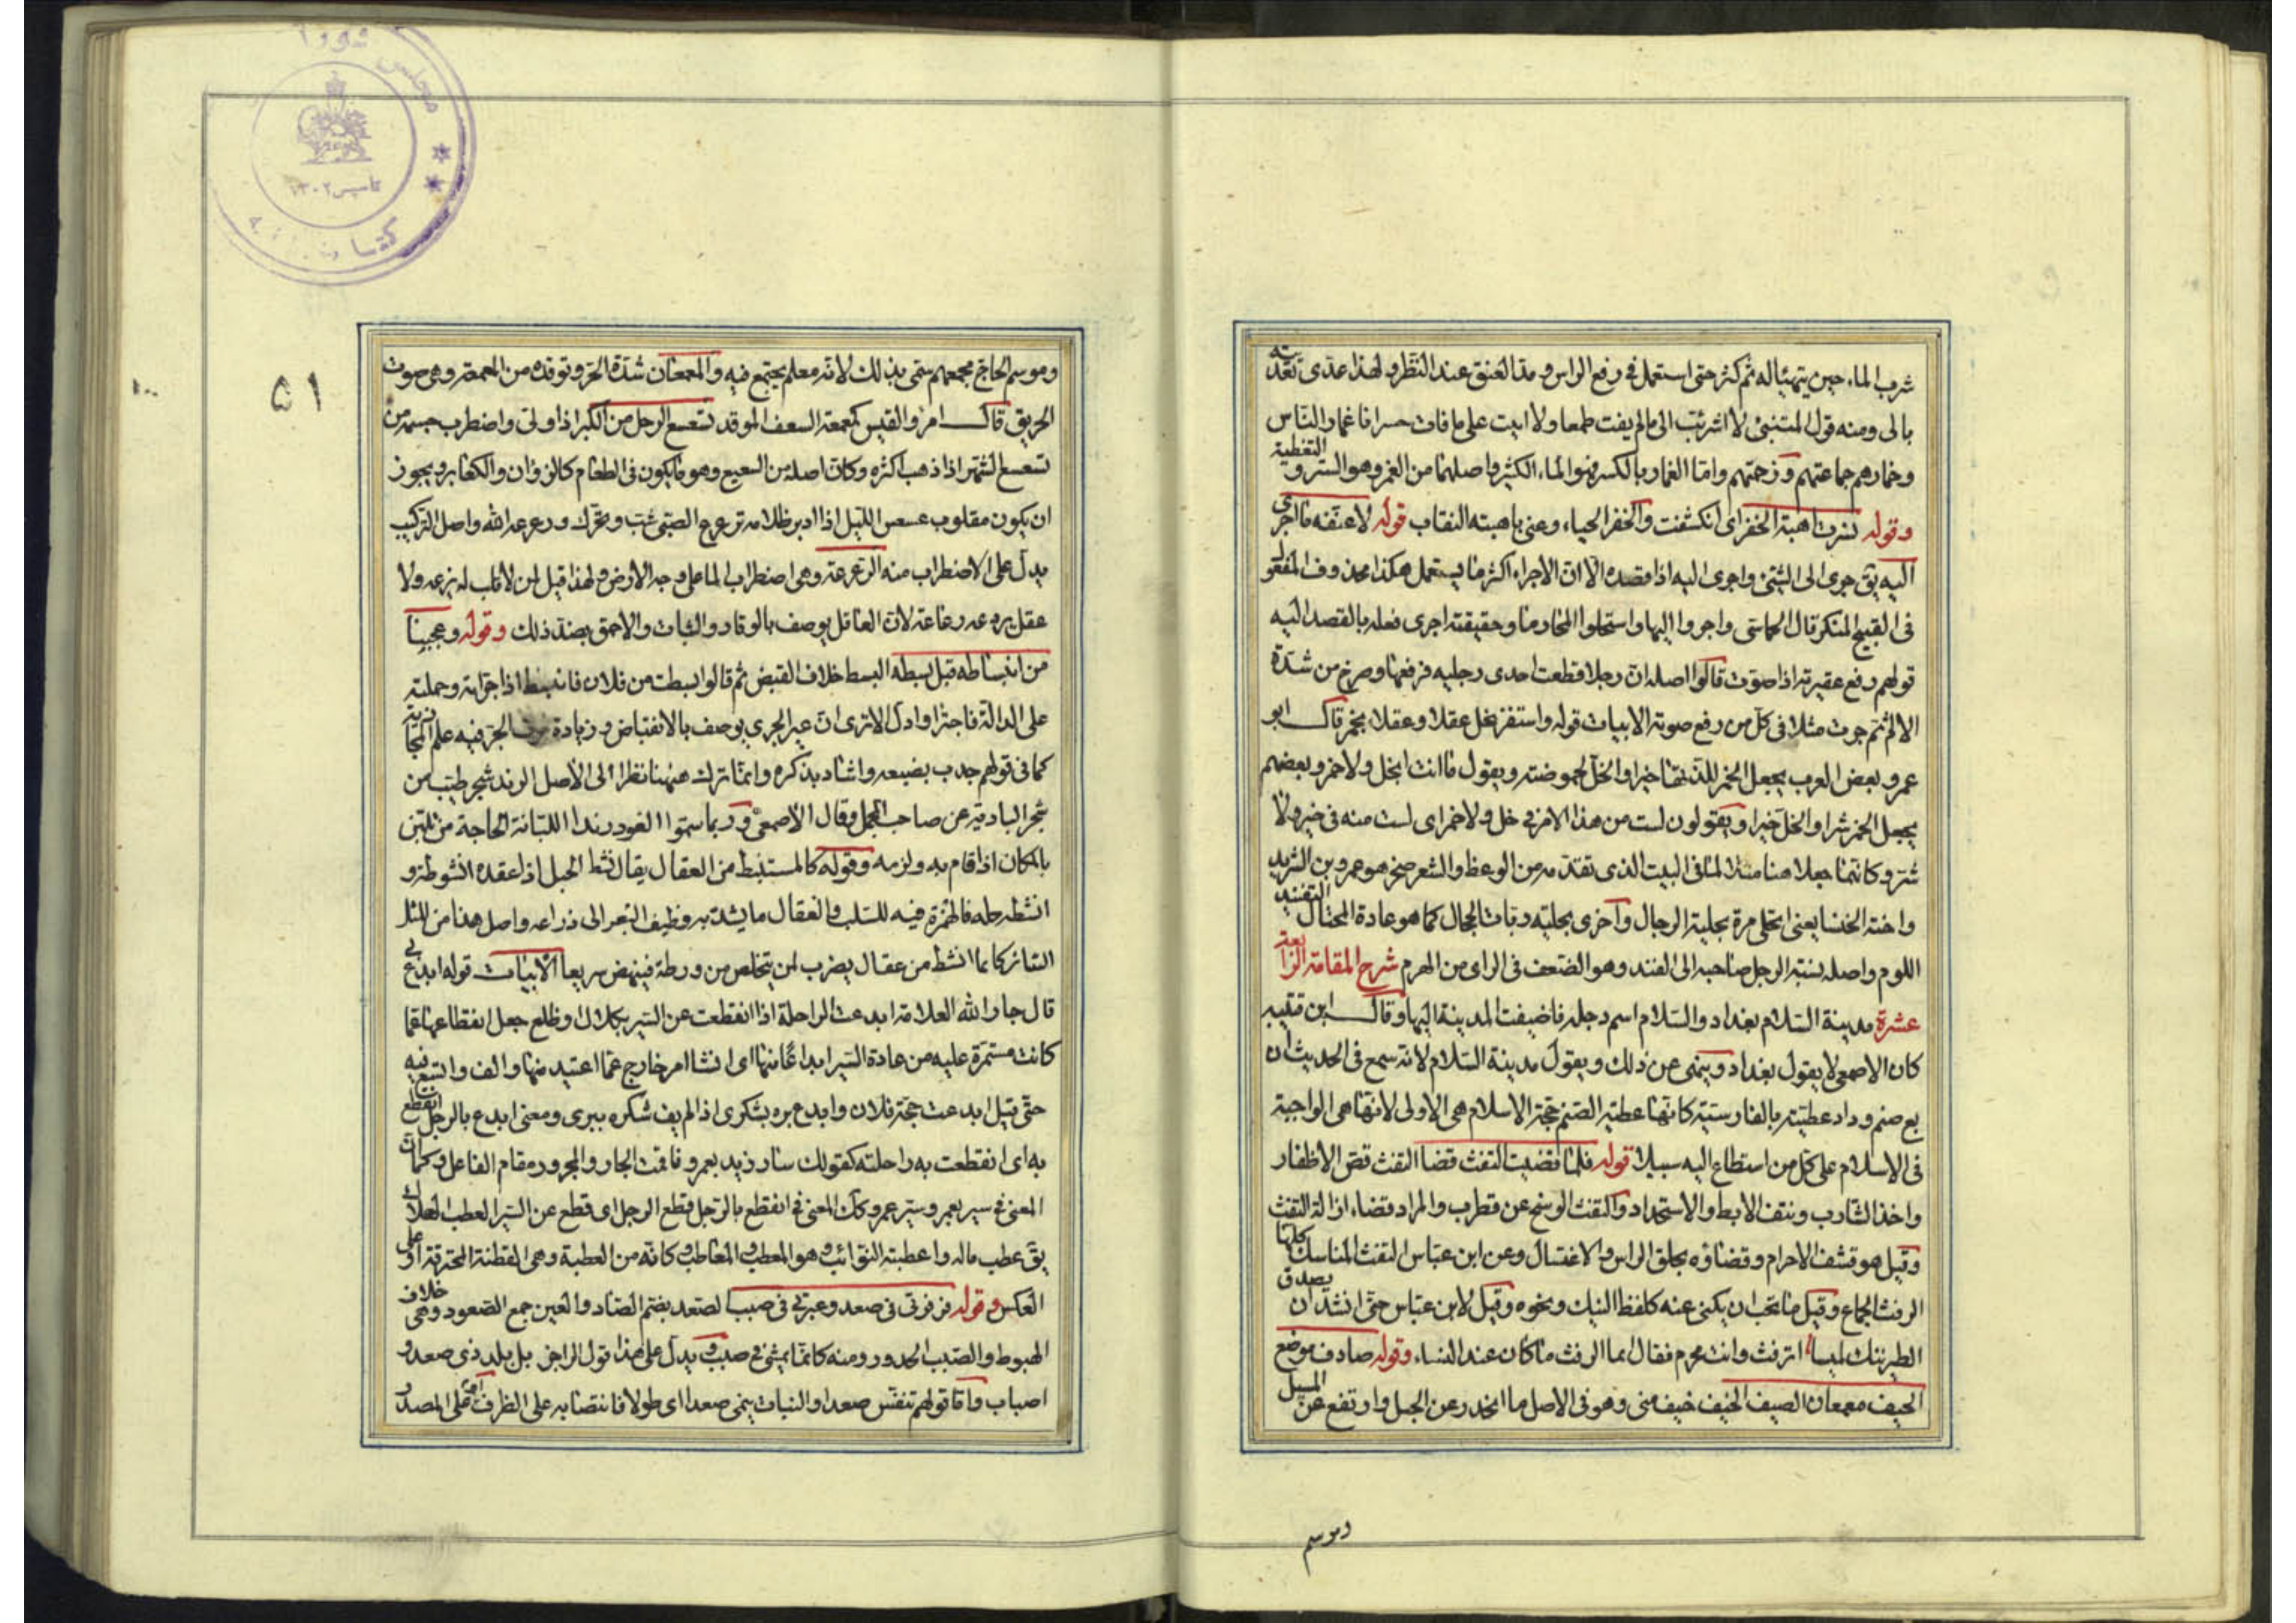 شرب الماء حين يتهيا له ثم كثر حتى استعمل فى رفع الراس و مد العنق عند النظر و لهذا عدى تعديته
بالى ومنه قول المتنبئ لا اشرئب الى مالم يفت طمعا ولا ابيت على ما فات حسرانا غمار الناس
وخمارهم جماعتهم و زحمتهم واما الغمار بالكسر فهو الماء الكثير واصلهما من الغمر وهو الستر والتغطية
وقوله نشرت اهبة الخفر اى انكشفت والخفر الحياء وعنى باهبته النقاب قوله لا عنفه ما اجرى
اليه يق جرى الى الشئ واجرى اليه اذا قصده الا ان الاجراء اكثر ما يستعمل هكذا محذوف المفعول
فى القبيح المنكر قال الحماسى واجروا اليها واستحلوا المحارما وحقيقته اجرى فعله بالقصد اليه
قولهم رفع عقيرته اذا صوت قالوا اصله ان رجلا قطعت احدى رجليه فرفعها وصرخ من شدة
الالم ثم جرت مثلا فى كل من رفع صوته الابيات قوله واستفز بخل عقلا وعقلا بخمر قال ابو
عمرو بعض العرب يجعل الخمر للذتها خيرا والخل لحموضته ويقول ما انت بخل ولا خمر وبعضهم
يجعل الخمر شرا والخل خيرا ويقولون لست من هذا الامر فى خل ولا خمر اى لست منه فى خير ولا
شر وكانما جعلا هنا مثلا لما فى البيت الذى تقدمه من الوعظ والشعر صخر هو عمرو بن الشريد
واخته الخنسا يعنى اتحلى مرة بحلية الرجال واخرى بحلية ربات الحجال كما هو عادة المحتال التفنيد
اللوم واصله نسبة الرجل صاحبه الى الفند وهو الضعف فى الراى من الهرم شرح المقامة الرابعة
عشرة مدينة السلام بغداد والسلام اسم دجلة فاضيفت المدينة اليها وقال ابن قتيبه
كان الاصمعى لا يقول بغداد وينهى عن ذلك ويقول مدينة السلام لانه سمع فى الحديث ان
بغ صنم وداد عطيته بالفارسية كانها عطية الصنم حجة الاسلام هى الاولى لانها هى الواجبة
فى الاسلام على كل من استطاع اليه سبيلا قوله فلما قضيت التفث قضا التفث قص الاظفار
واخذ الشارب ونتف الابط والاستحداد والتفث الوسخ عن قطرب والمراد قضاء ازالة التفث
وقيل هو قشف الاحرام وقضاؤه بحلق الراس والاغتسال وعن ابن عباس التفث المناسك كلها
الرفث الجماع وقيل ما يجب ان يكنى عنه كلفظ النيك ونحوه وقيل لابن عباس حين انشد ان يصدق
الطير ننك لميسا اترفث وانت محرم فقال انما الرفث ما كان عند النساء وقوله صادف موضع
الخيف معمعان الصيف الخيف خيف منى وهو فى الاصل ما انحدر عن الجبل وارتفع عن المسيل
وموسم
٥١
وموسم الحاج مجمعهم سمى بذلك لانه معلم يجتمع فيه والمعمعان شدة الحر وتوقده من المعمعة وهى صوت
الحريق قال امرؤ القيس كمعمعة السعف الموقد تسعسع الرجل من الكبر اذا ولى واضطرب جسمه من
تسعسع الشهر اذا ذهب اكثره وكان اصله من السعيع وهو ما يكون فى الطعام كالزؤان والكعابر ويجوز
ان يكون مقلوب عسعس الليل اذا ادبر ظلامه ترعرع الصبى شب وتحرك ورعرعه الله واصل التركيب
يدل على الاضطراب منه الرعرعة وهى اضطراب الماء على وجه الارض ولهذا قيل لمن لا لب له يزعه ولا
عقل يردعه رعاعة لان العاقل يوصف بالوقار والثبات والاحمق بضد ذلك وقوله وعجبنا
من انبساطه قبل بسطه البسط خلاف القبض ثم قالوا بسطت من فلان فانبسط اذا جراته وحملته
على الدالة فاجترا وادل الا ترى ان غير الجرى يوصف بالانقباض وزيادة الجر فيه علم المجاز
كما فى قولهم جدب بضبعه واشاد بذكره وانما ترك هنهنا نظرا الى الاصل الرند شجر طيب من
شجر البادية عن صاحب المجمل وقال الاصمعى وربما سموا العود رندا اللبانة الحاجة من تلبن
بالمكان اذا قام به ولزمه وقوله كالمستنبط من العقال يقال نشط الحبل اذا عقده انشوطة و
انشطه حله فالهمزة فيه للسلب والعقال ما يشد به وظيف البعير الى ذراعه واصل هذا من المثل
السائر كانما انشط من عقال يضرب لمن يتخلص من ورطة فينهض سريعا الابيات قوله ابدع بى
قال جار الله العلامة ابدعت الراحلة اذا انقطعت عن السير بكلال او ظلع جعل انقطاعها عما
كانت مستمرة عليه من عادة السير ابداعا منها اى انشا امر خارج عما اعتيد منها والف واتسع فيه
حتى قيل ابدعت حجة فلان وابدع بره بشكرى اذا لم يف شكره ببرى ومعنى ابدع بالرجل انقطع
به اى انقطعت به راحلته كقولك سار زيد بعمرو فاقمت الجار والمجرور مقام الفاعل وكما ان
المعنى فى سير بعمرو سير عمرو كك المعنى فى انقطع بالرجل قطع الرجل اى قطع عن السير العطب الهلاك
يق عطب ماله واعطبته النوائب وهو المعطب والمعاطب وكانه من العطبة وهى القطنة المحترقة او على
العكس وقوله فزفرتى فى صعد وعبرتى فى صبب الصعد بضم الصاد والعين جمع الصعود وهى خلاف
الهبوط والصبب الحدور ومنه كانما يمشى فى صبب ويدل على هذا قول الراجز بل بلد ذى صعد و
اصباب واما قولهم تنفس صعدا والنبات ينمى صعدا اى طولا فانتصابه على الظرف او على المصدر